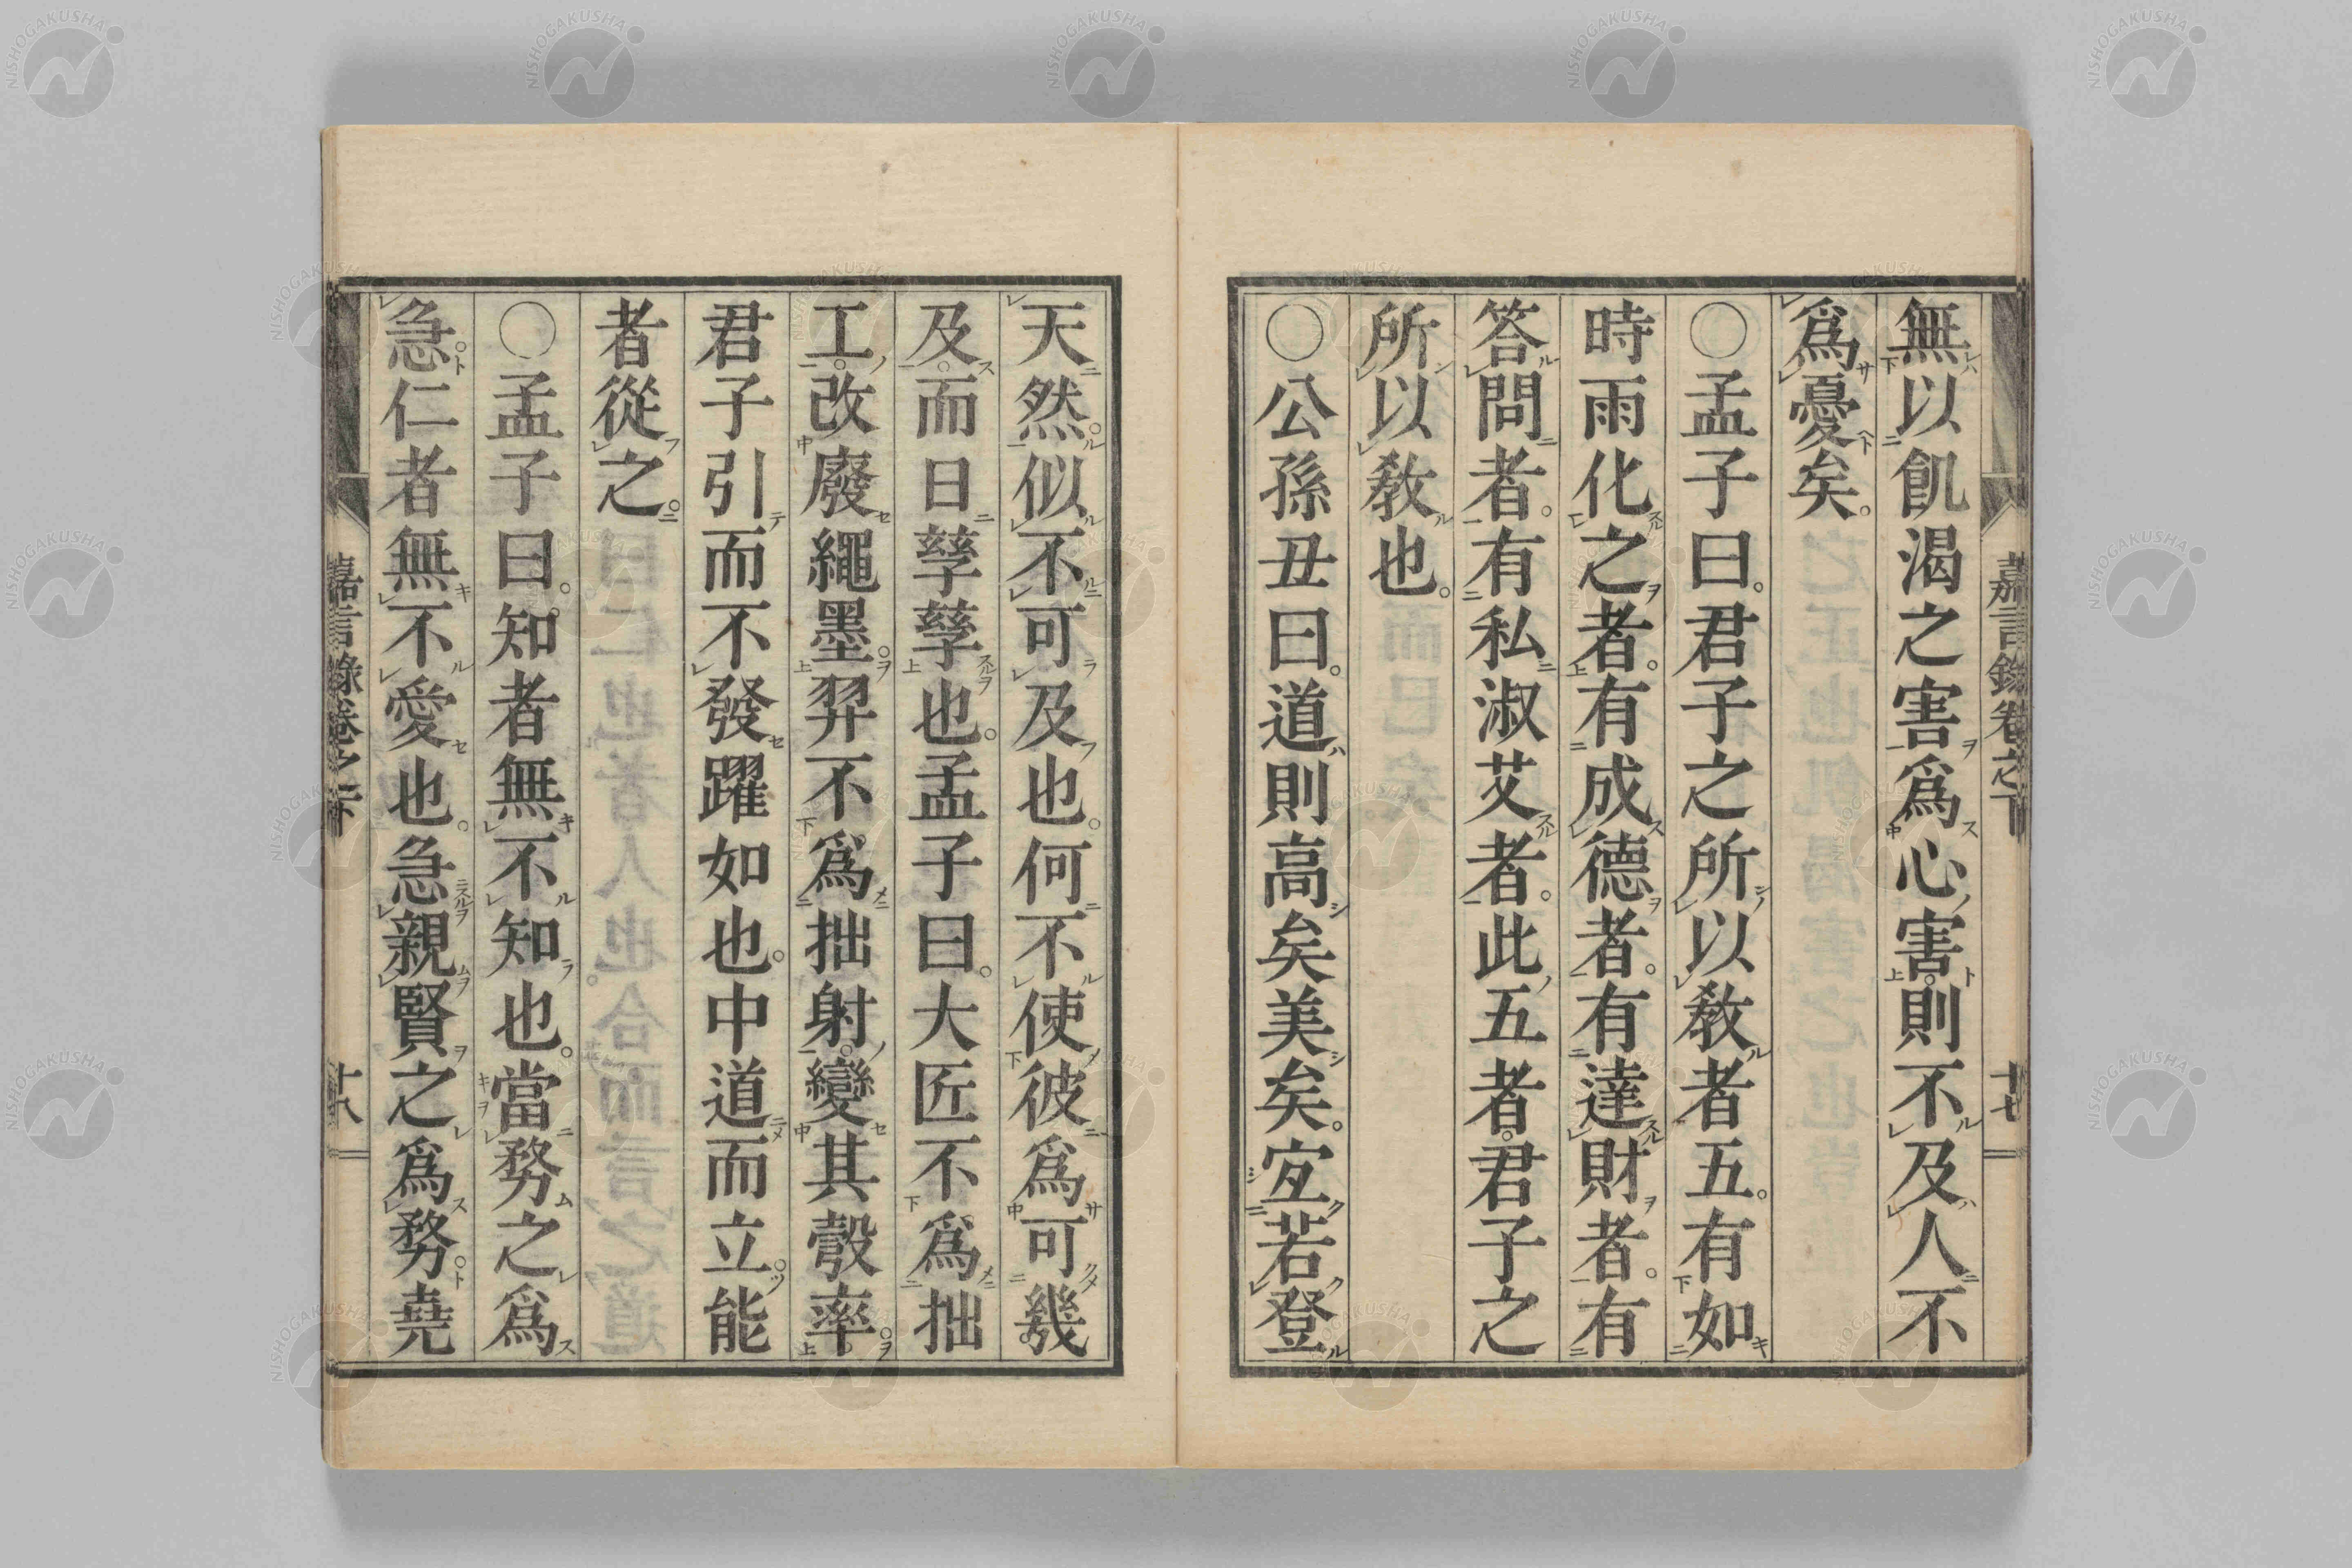 無以飢渴之害爲心害則不及人不
爲憂矣。
○孟子曰。君子之所以敎者五。有如
時雨化之者。有成德者。有達財者。有
答問者。有私淑艾者。此五者。君子之
所以敎也。
○公孫丑曰。道則高矣美矣。宜若登
天然。似不可及也。何不使彼爲可幾
及。而日孳孳也。孟子曰。大匠不爲拙
工。改廢繩墨。羿不爲拙射。變其彀率。
君子引而不發躍如也。中道而立。能
者從之。
○孟子曰。知者無不知也。當務之爲
急。仁者無不愛也。急親賢之爲務。堯
嘉言錄卷之下
十七
嘉言錄卷之下
十八
NISHOGAKUSHA